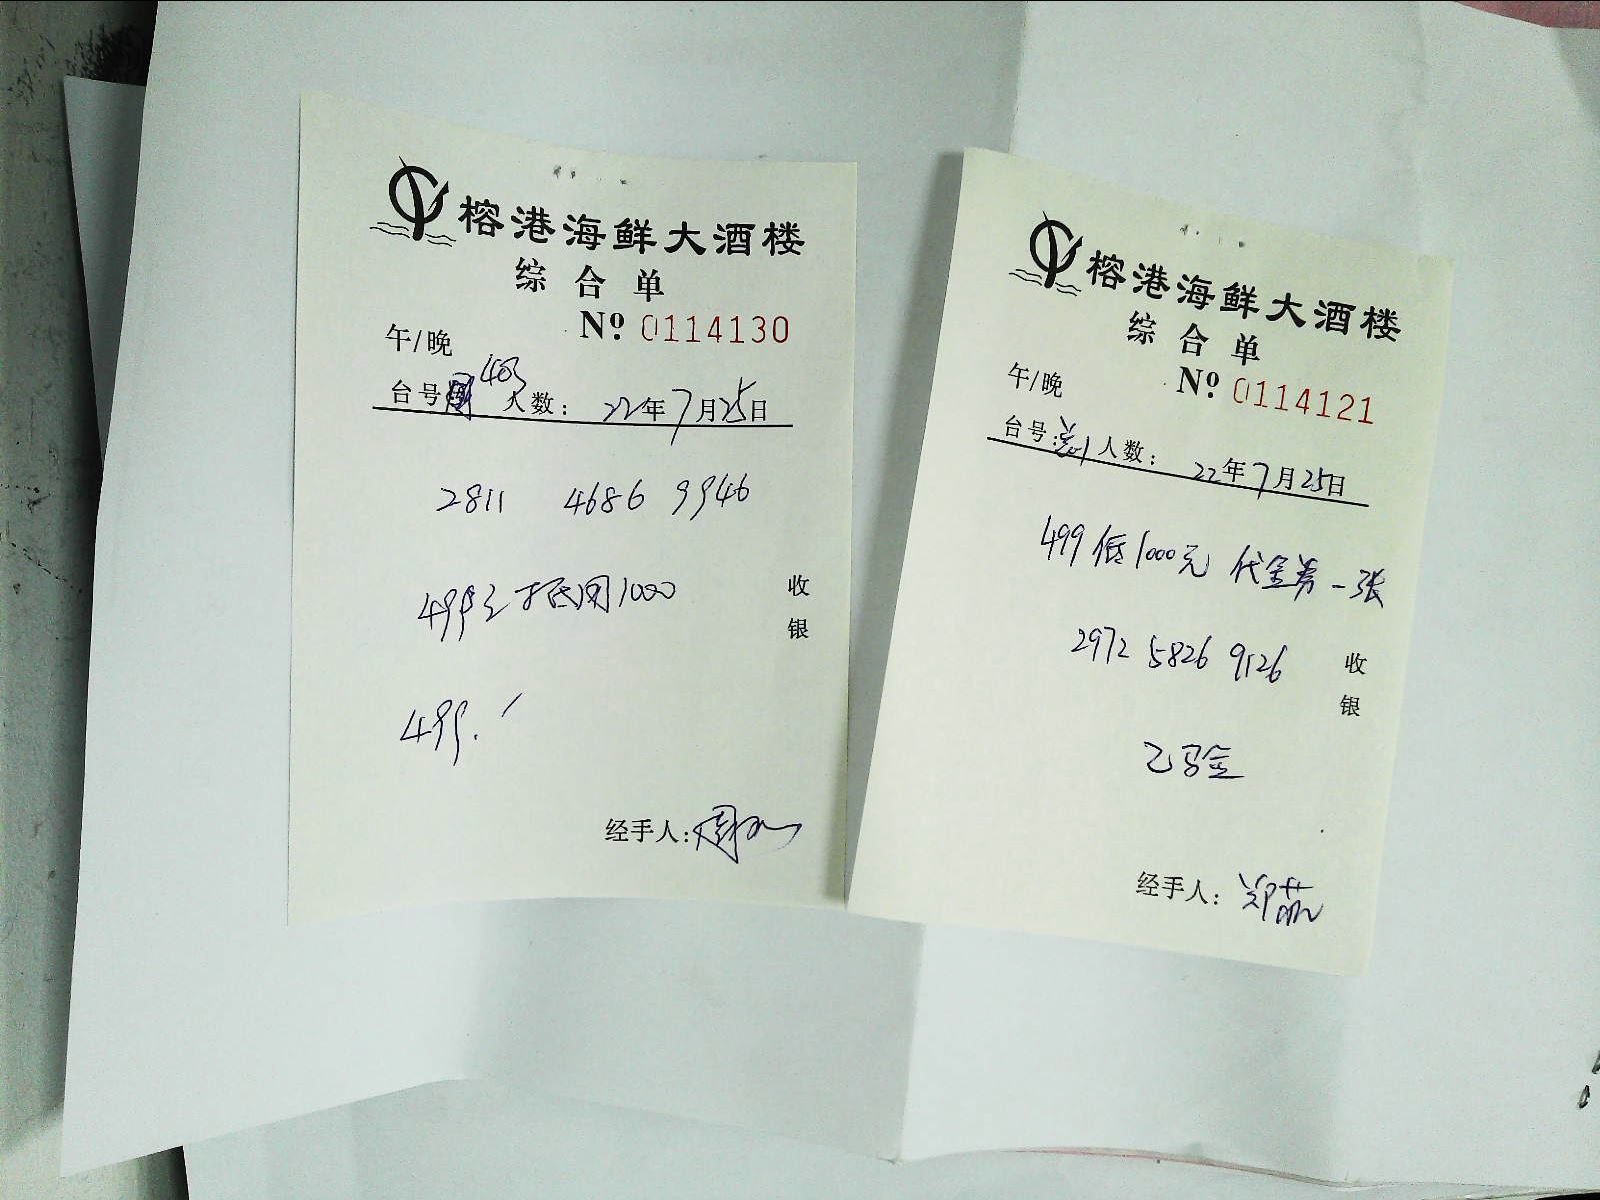 榕港海鲜大酒楼
综合单
午/晚
№ 0114130
台号 403 人数: 22年7月25日
2811 4686 9946
499元抵用1000
收银
499.
经手人:
榕港海鲜大酒楼
综合单
午/晚
№ 0114121
台号: 人数: 22年7月25日
499低1000元 代金券一张
2972 5826 9126
收银
已验
经手人: 郑